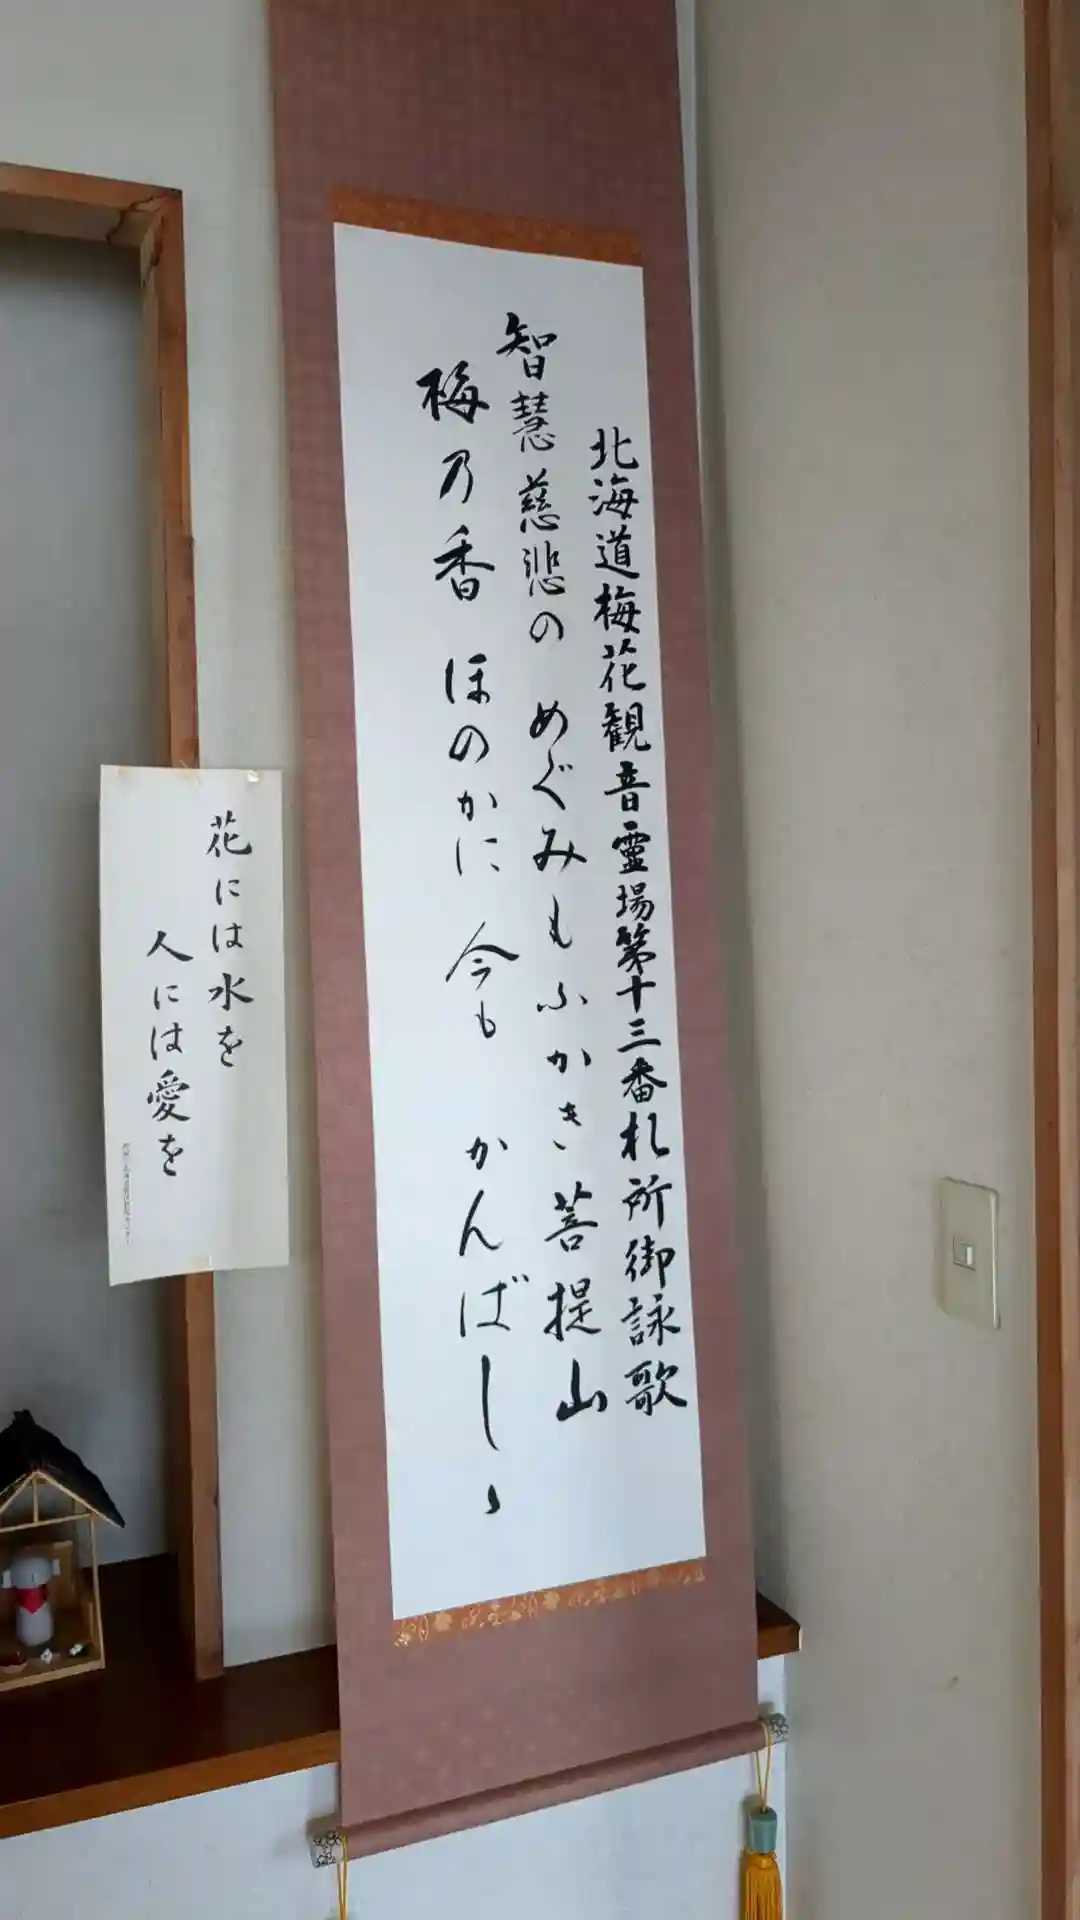 北海道梅花観音霊場第十三番札所御詠歌
智慧慈悲の めぐみもふかき 菩提山
梅乃香 ほのかに 今も かんばしゝ
花には水を
人には愛を